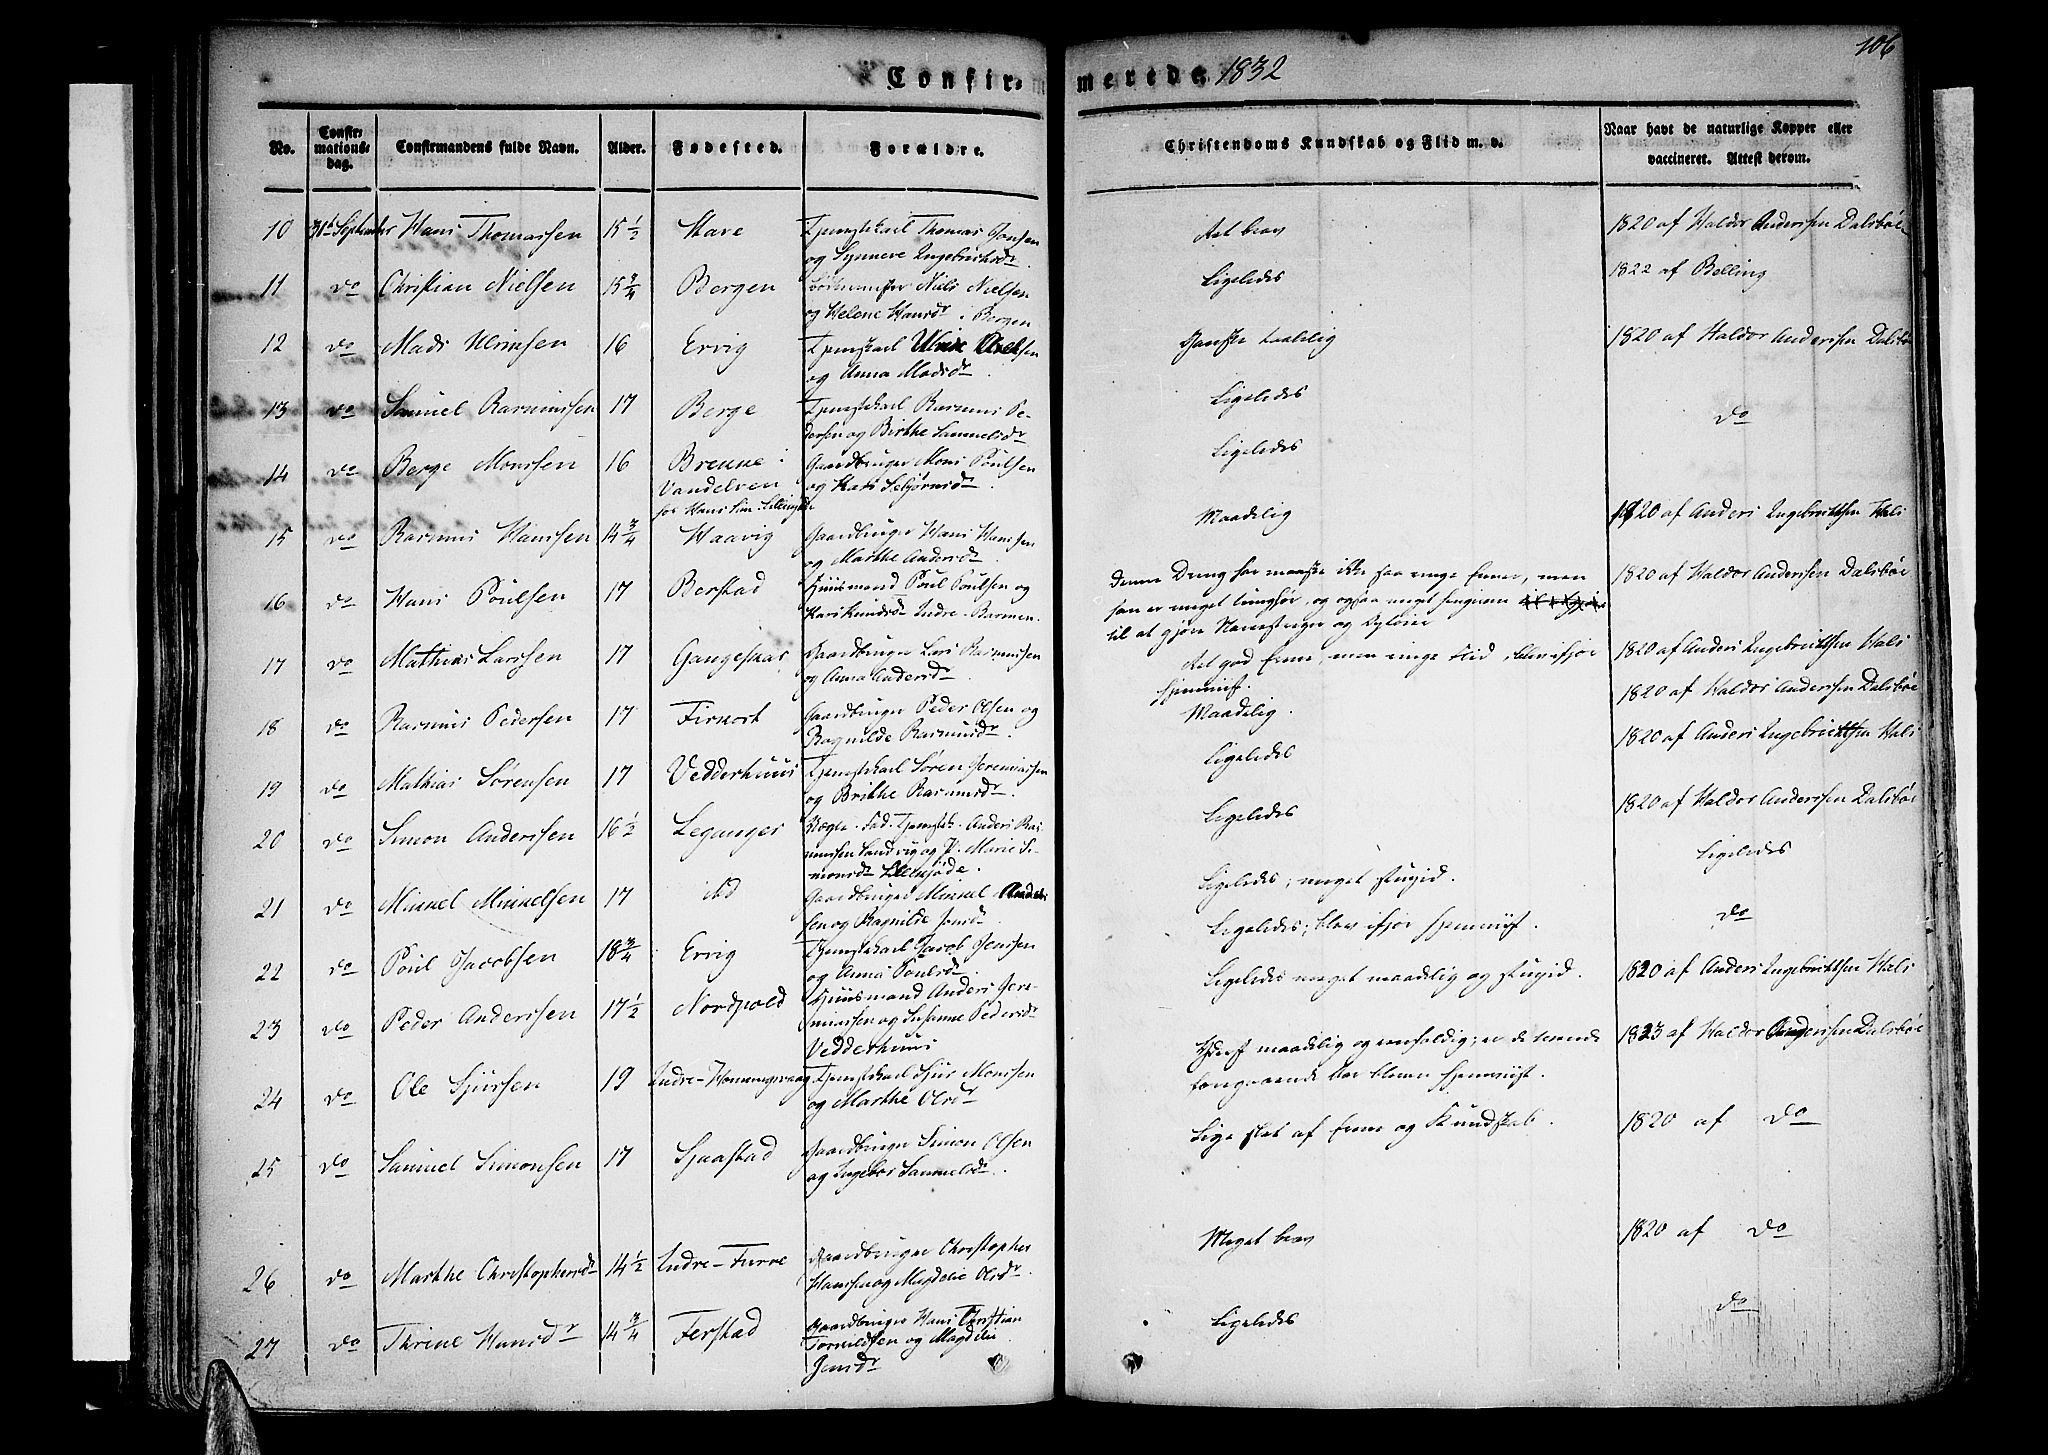 106
Confirmerede 1832
No. Confirmationsdag. Confirmandens fulde Navn. Alder. Fødested. Forældre. Christendoms Kundskab og Flid m. v. Naar havt de naturlige Kopper eller vaccineret. Attest derom.
10 September Hans Thomassen 15 1/2 Stave Tjenestekarl Thomas Jonsen
og Synneve Ingebrichtsdr.
Ret brav 1820 af Haldor Anderssen Dalsbøe
11 do Christian Nielsen 15 3/4 Bergen Niels Nielsen
og Helene Hansdr i Bergen
Ligeledes 1822 af Belling
12 do Mads Ulrinsen 16 Ervig Tjenstekarl
og Anna Madsdr.
Ganske taalelig 1820 af Haldor Anderssen Dalsbøe
13 do Samuel Rasmussen 17 Berge Tjenstekarl Rasmus Pe-
dersen og Birthe Samuelsdr
Ligeledes do
14 do Berge Monssen 16 Brenne i
Vandelven
Gaardbruger Mons Poulsen
og Kari
Ligeledes
15 do Rasmus Hanssen 14 3/4 Haavig Gaardbruger Hans Hanssen
og Marthe Andersdr
Maadelig 1820 af Anders Ingebrichtsen Hals
16 do Hans Poulsen 17 Berstad Huusmand Poul Poulsen og
Kari Knudsdr Indre-Barmen.
Denne Dreng har maaske ikke saa ringe Evner, men
han er meget tunghør, og ogsaa meget
til at gjøre
1820 af Haldor Anderssen Dalsbøe
17 do Mathias Larssen 17 Gangeskar Gaardbruger Lars Rasmussen
og Anna Andersdr.
Ret god Evne, men ringe Flid; blev ifjor
hjemviist.
1820 af Anders Ingebrichtsen Hals
18 do Rasmus Pedersen 17 Firnort Gaardbruger Peder Olsen og
Ragnilde Rasmusdr.
Maadelig. 1820 af Haldor Anderssen Dalsbøe
19 do Mathias Sørensen 17 Vedderhuus Tjenstekarl Søren Jeremiassen
og Brithe Rasmusdr.
Ligeledes 1820 af Anders Ingebrichtsen Hals
20 do Simon Anderssen 16 1/2 Leganger Uægte. Fad. Tjenstk. Anders Ras-
mussen Sandvig og P. Marie Si-
monsdr
Ligeledes 1820 af Haldor Anderssen Dalsbøe
21 do Mikkel Mikkelsen 17 Gaardbruger Mikkel Anders-
sen og Ragnilde Jonsdr.
Ligeledes; meget stupid. Ligeledes
22 do Poul Jacobsen 18 3/4 Ervig Tjenstekarl Jacob Jenssen
og Anna Poulsdr
Ligeledes; blev ifjor hjemviist. do
23 do Peder Anderssen 17 1/2 Nordpold Huusmand Anders Jere-
miassen og Susanne Pedersdr
Vedderhuus
Ligeledes meget maadelig og stupid. 1820 af Anders Ingebrichtsen Hals
24 do Ole Sjursen 19 Indre-Hommingsvaag Tjenstekarl Sjur Monssen
og Marthe Olsdr
Yderst maadelig og eenfoldig; er de tvende
foregaaende Aar bleven hjemviist.
1823 af Haldor Anderssen Dalsbøe
25 do Samuel Simonsen 17 Sjaastad Gaardbruger Simon Olsen
og Ingebor Samuelsdr.
Lige slet af Evne og Kundskab. 1820 af do
26 do Marthe Christophersdr 14 1/2 Indre-Furre Gaardbruger Christopher
Hanssen og Magdele Olsdr.
Meget brav 1820 af do
27 do Thrine Hansdr 14 3/4 Ferstad Gaardbruger Hans Christian
Torvildsen og Magdele
Jensdr
Ligeledes do